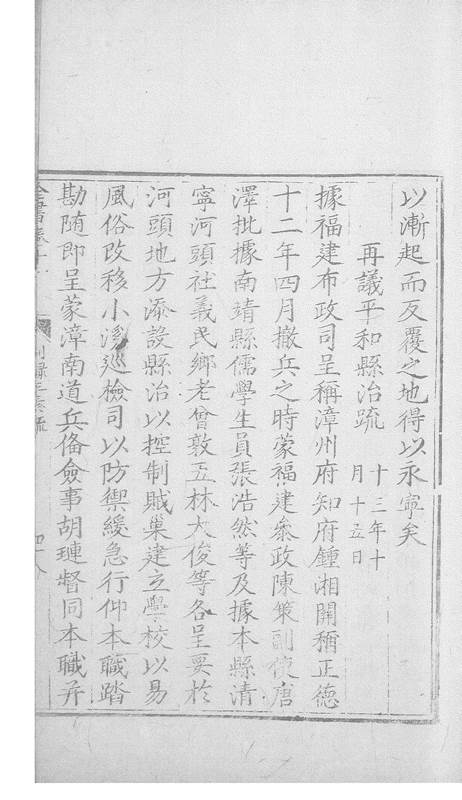 以漸起而反覆之地得以永寧矣
再議平和縣治疏
十三年十
月十五日
據福建布政司呈稱漳州府知府鍾湘開稱正德
十二年四月撤兵之時蒙福建叅政陳策副使唐
澤批據南靖縣儒學生員張浩然等及據本縣清
寧河頭社義民鄉老曾敦五林大俊等各呈要於
河頭地方添設縣治以控制賊巢建立學校以易
風俗改移小溪巡檢司以防禦緩急行仰本職踏
勘隨即呈蒙漳南道兵俻僉事胡璉督同本職并